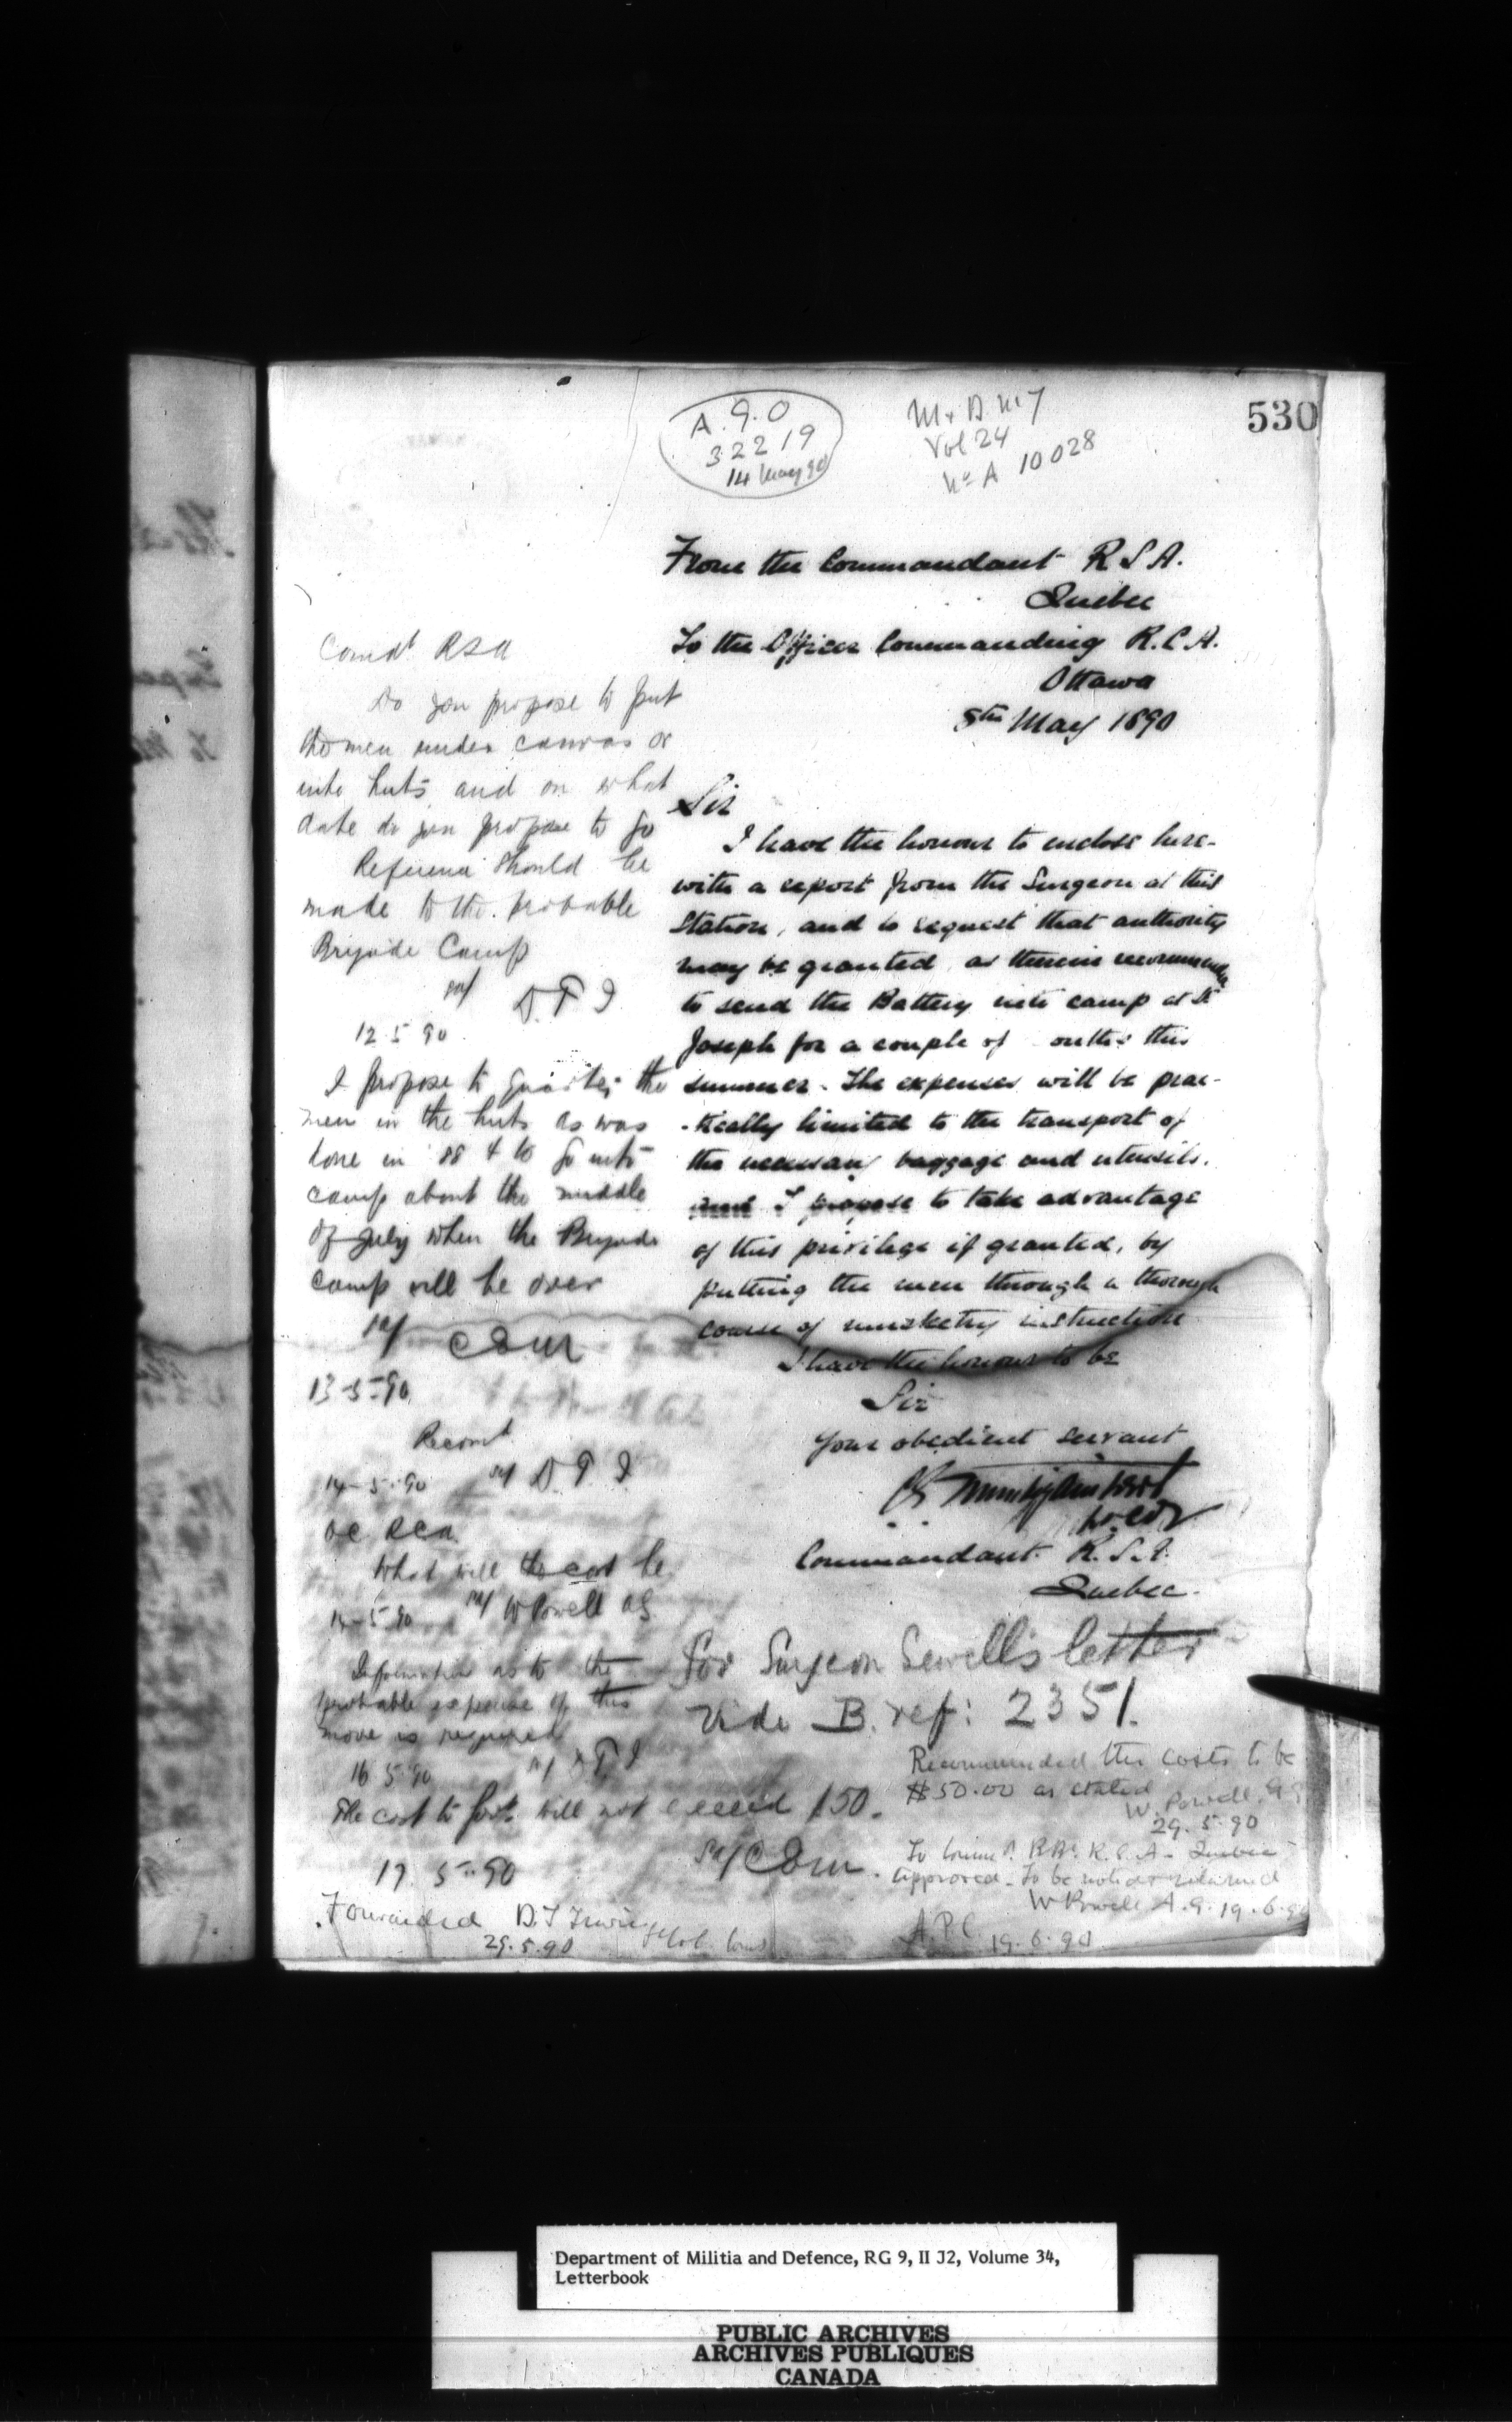 530
A.G.O
32219
14 May 90
M. & D. M
Vol 24
No A 10028
From the Commandant R S A.
Quebec
To the Officer Commanding R.C.A.
Ottawa
8th May 1890
Sir
I have the honour to enclose here-
with a report from the Surgeon at this
Station, and to request that authority
may be granted as therein recommended
to send the Battery into camp at St
Joseph for a couple of onths this
summer. The expenses will be prac-
-tically limited to the transport of
the necessary baggage and utensils.
and I propose to take advantage
of this privilege if granted, by
putting the men through a thorough
course of musketry instruction
I have the honour to be
Sir
Your obedient servant
Lt. Col
Commandant R.S.A.
Quebec.
For Surgeon Sewell's letter
Vide B. ref: 2351.
Comdt RSA
Do you propose to put
the men under canvas or
into huts and on what
date do you propose to go
Reference should be
made to the probable
Brigade Camp
sd/ D T I
12.5.90.
I propose to quarter the
men in the huts as was
done in '88 & to go into
camp about the middle
of July when the Brigade
camp will be over
sd/ CEM
13-5-90
Recomd
14-5-90 sd/ D T I
OC RCA
What will the cost be
14-5-90 sd/ W Powell AG
Information as to the
probable expense of this
move is required
16 5 90 sd/ D T I
The cost to Govt. will not exceed $50.
sd/ CEM.
17. 5. 90
Forwarded D.T Irwin
29.5.90
Recommended the costs to be
$50.00 as stated
W. Powell. AG
29. 5. 90
To Comdt. R.S.A. Quebec
Approved. To be noted & returned
W Powell A.G. 19.6.90
19.6.90
Department of Militia and Defence, RG 9, II J2, Volume 34,
Letterbook
PUBLIC ARCHIVES
ARCHIVES PUBLIQUES
CANADA